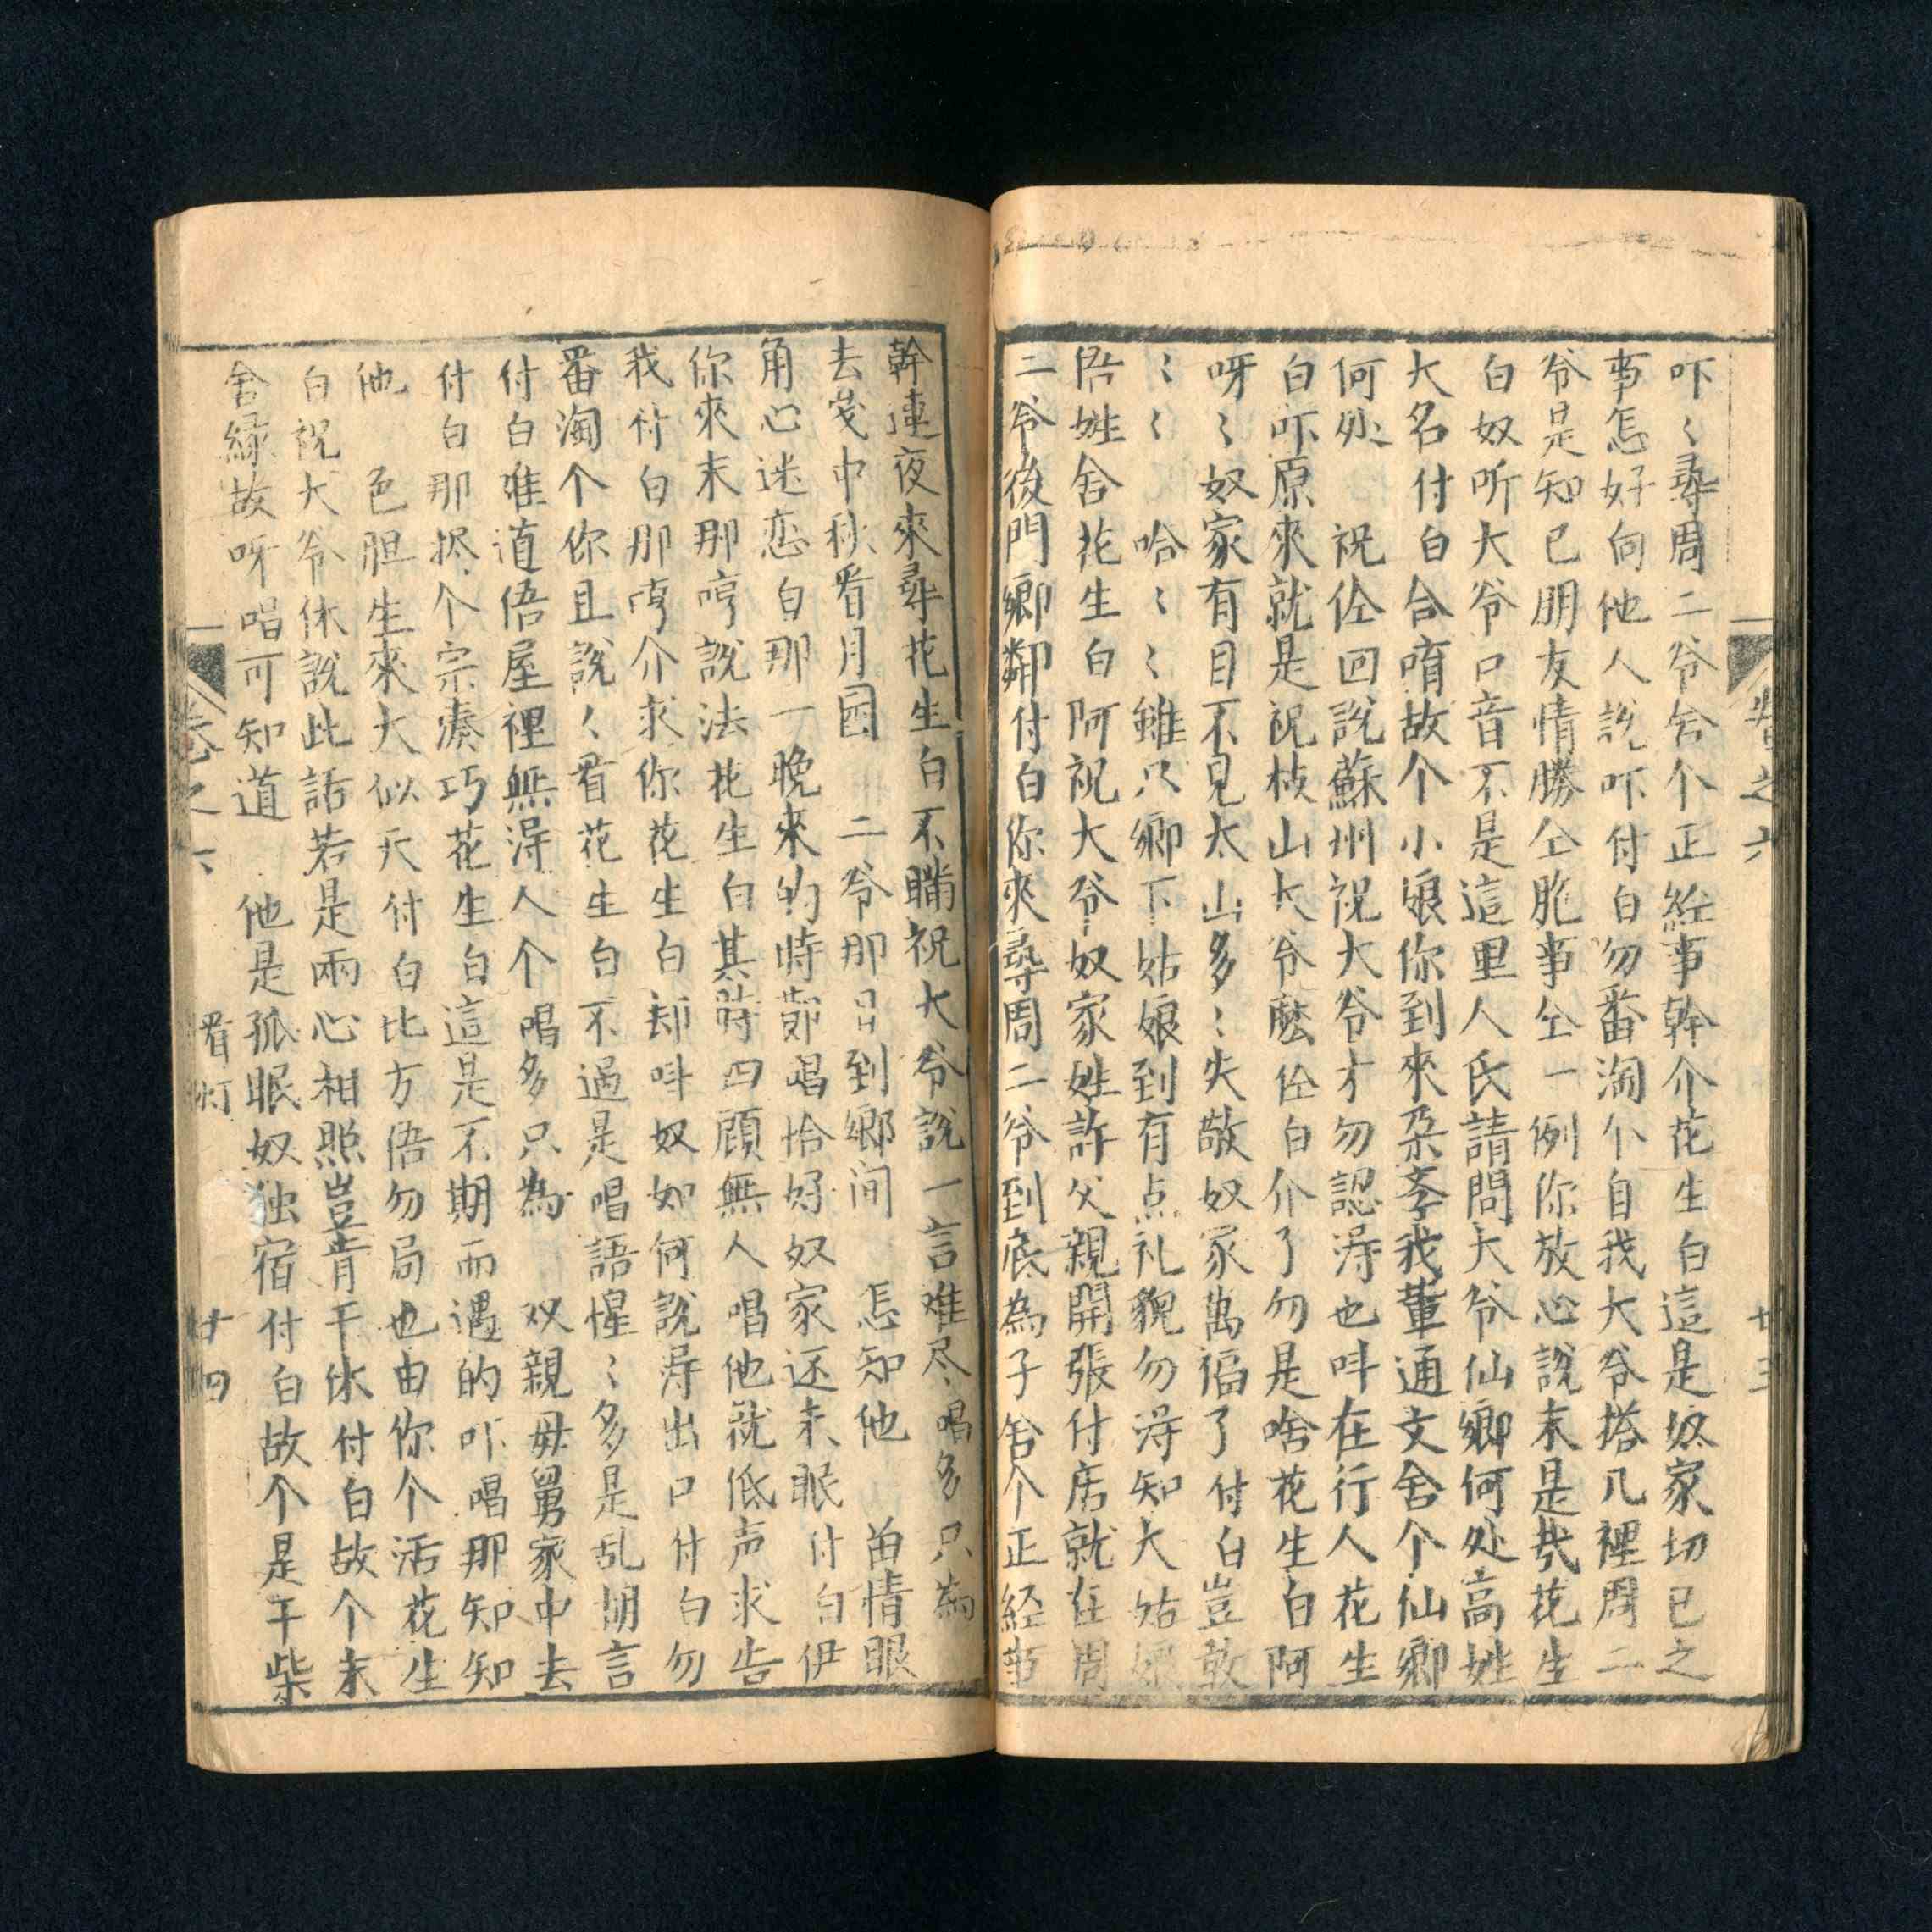 卷之六
廿三
吓〻尋周二爷舍个正经事幹介花生白這是奴家切已之
事怎好向他人說吓付白勿番淘个自我大爷搭几裡周二
爷是知已朋友情勝仝胞事仝一例你放心說末是哉花生
白奴听大爷口音不是這里人氏請問大爷仙鄉何处高姓
大名付白合唷故个小娘你到來朶孛我葷通文舍个仙鄉
何处 祝佺回說蘇州祝大爷才勿認淂也呌在行人花生
白吓原來就是祝枝山大爷麽佺白介了勿是啥花生白阿
呀〻奴家有目不見太山多〻失敬奴家萬福了付白豈敢
〻〻 哈〻〻雖只鄉下姑娘到有点礼貌勿淂知大姑娘
俉姓舍花生白阿祝大爷奴家姓許父親開張付店就在周
二爷後門鄉鄰付白你來尋周二爷到底為子舍个正经事
幹連夜來尋花生白不瞞祝大爷說一言难尽唱多只為
去歲中秋看月圓 二爷那日到鄉间 怎知他 苗情眼
角心迷恋白那一晚來的時節唱恰好奴家还未眠付白伊
你來末那哼說法花生白其時四顧無人唱他就低声求告
我付白那哼介求你花生白却呌奴如何說淂出口付白勿
番淘个你且說〻看花生白不過是唱語惺〻多是乱胡言
付白难道俉屋裡無淂人个唱多只為 双親毋舅家中去
付白那捴个宗凑巧花生白這是不期而遇的吓唱那知知
他 色胆生來大似天付白比方俉勿局也由你个活花生
白祝大爷休說此話若是兩心相照豈肯干休付白故个末
舍緑故呀唱可知道 他是孤眠奴独宿付白故个是干柴
卷之六
看灯
廿四